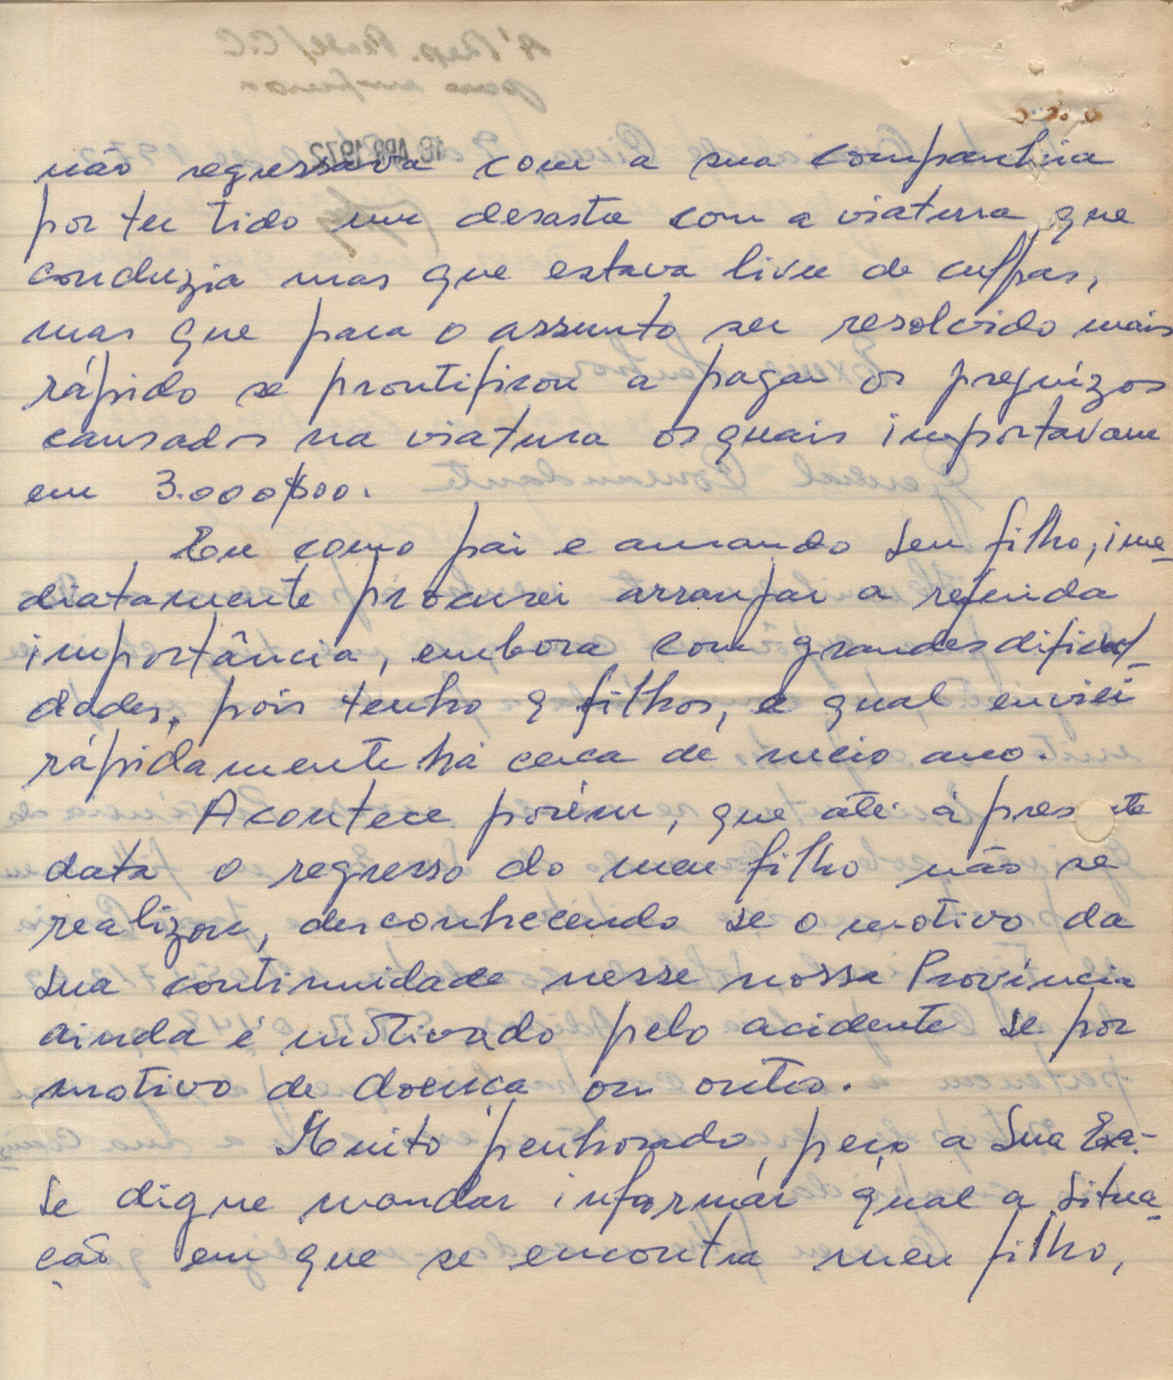 não regressava com a sua companhia
por ter tido um desastre com a viatura que
conduzia mas que estava livre de culpas,
mas que para o assunto ser resolvido mais
rápido se prontificou a pagar os prejuízos
causados na viatura os quais importavam
em 3.000$00.
Eu como pai e amando seu filho, ime-
diatamente procurei arranjar a referida
importância, embora com grandes dificul-
dades, pois tenho 9 filhos, a qual enviei
rápidamente há cerca de meio ano.
Acontece porém, que até à pres te
data o regresso do meu filho não se
realizou, desconhecendo se o motivo da
sua continuidade nesse nossa Província
ainda é motivado pelo acidente se por
motivo de doença ou outro.
Muito penhorado, peço a Sua Exa.
se digne mandar informar qual a situa-
ção em que se encontra meu filho,